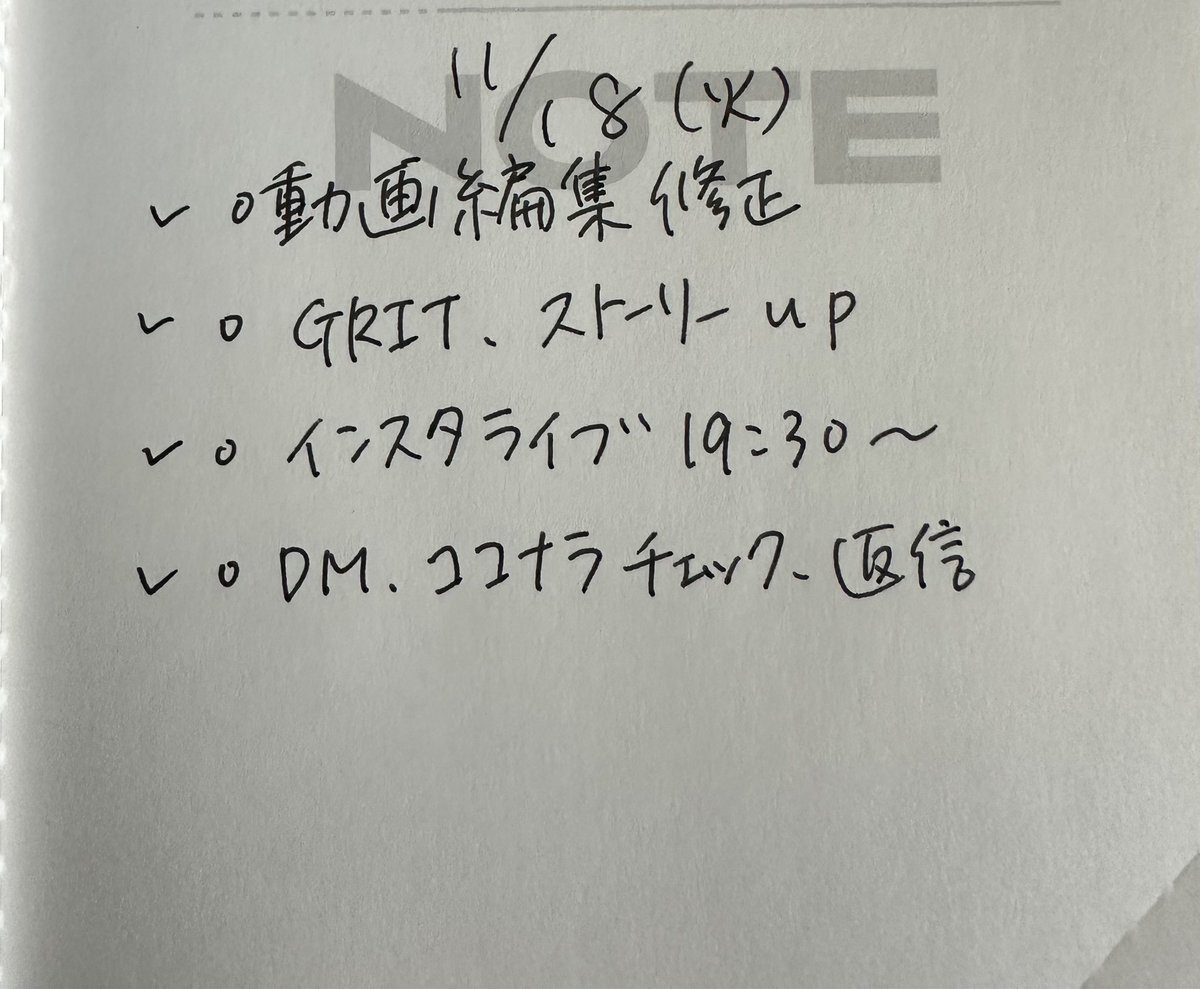 NOTE
11/18(火)
✓ ○動画編集 修正
✓ ○ GRIT、ストーリー up
✓ ○ インスタライブ 19:30〜
✓ ○ DM、ココナラ チェック、返信